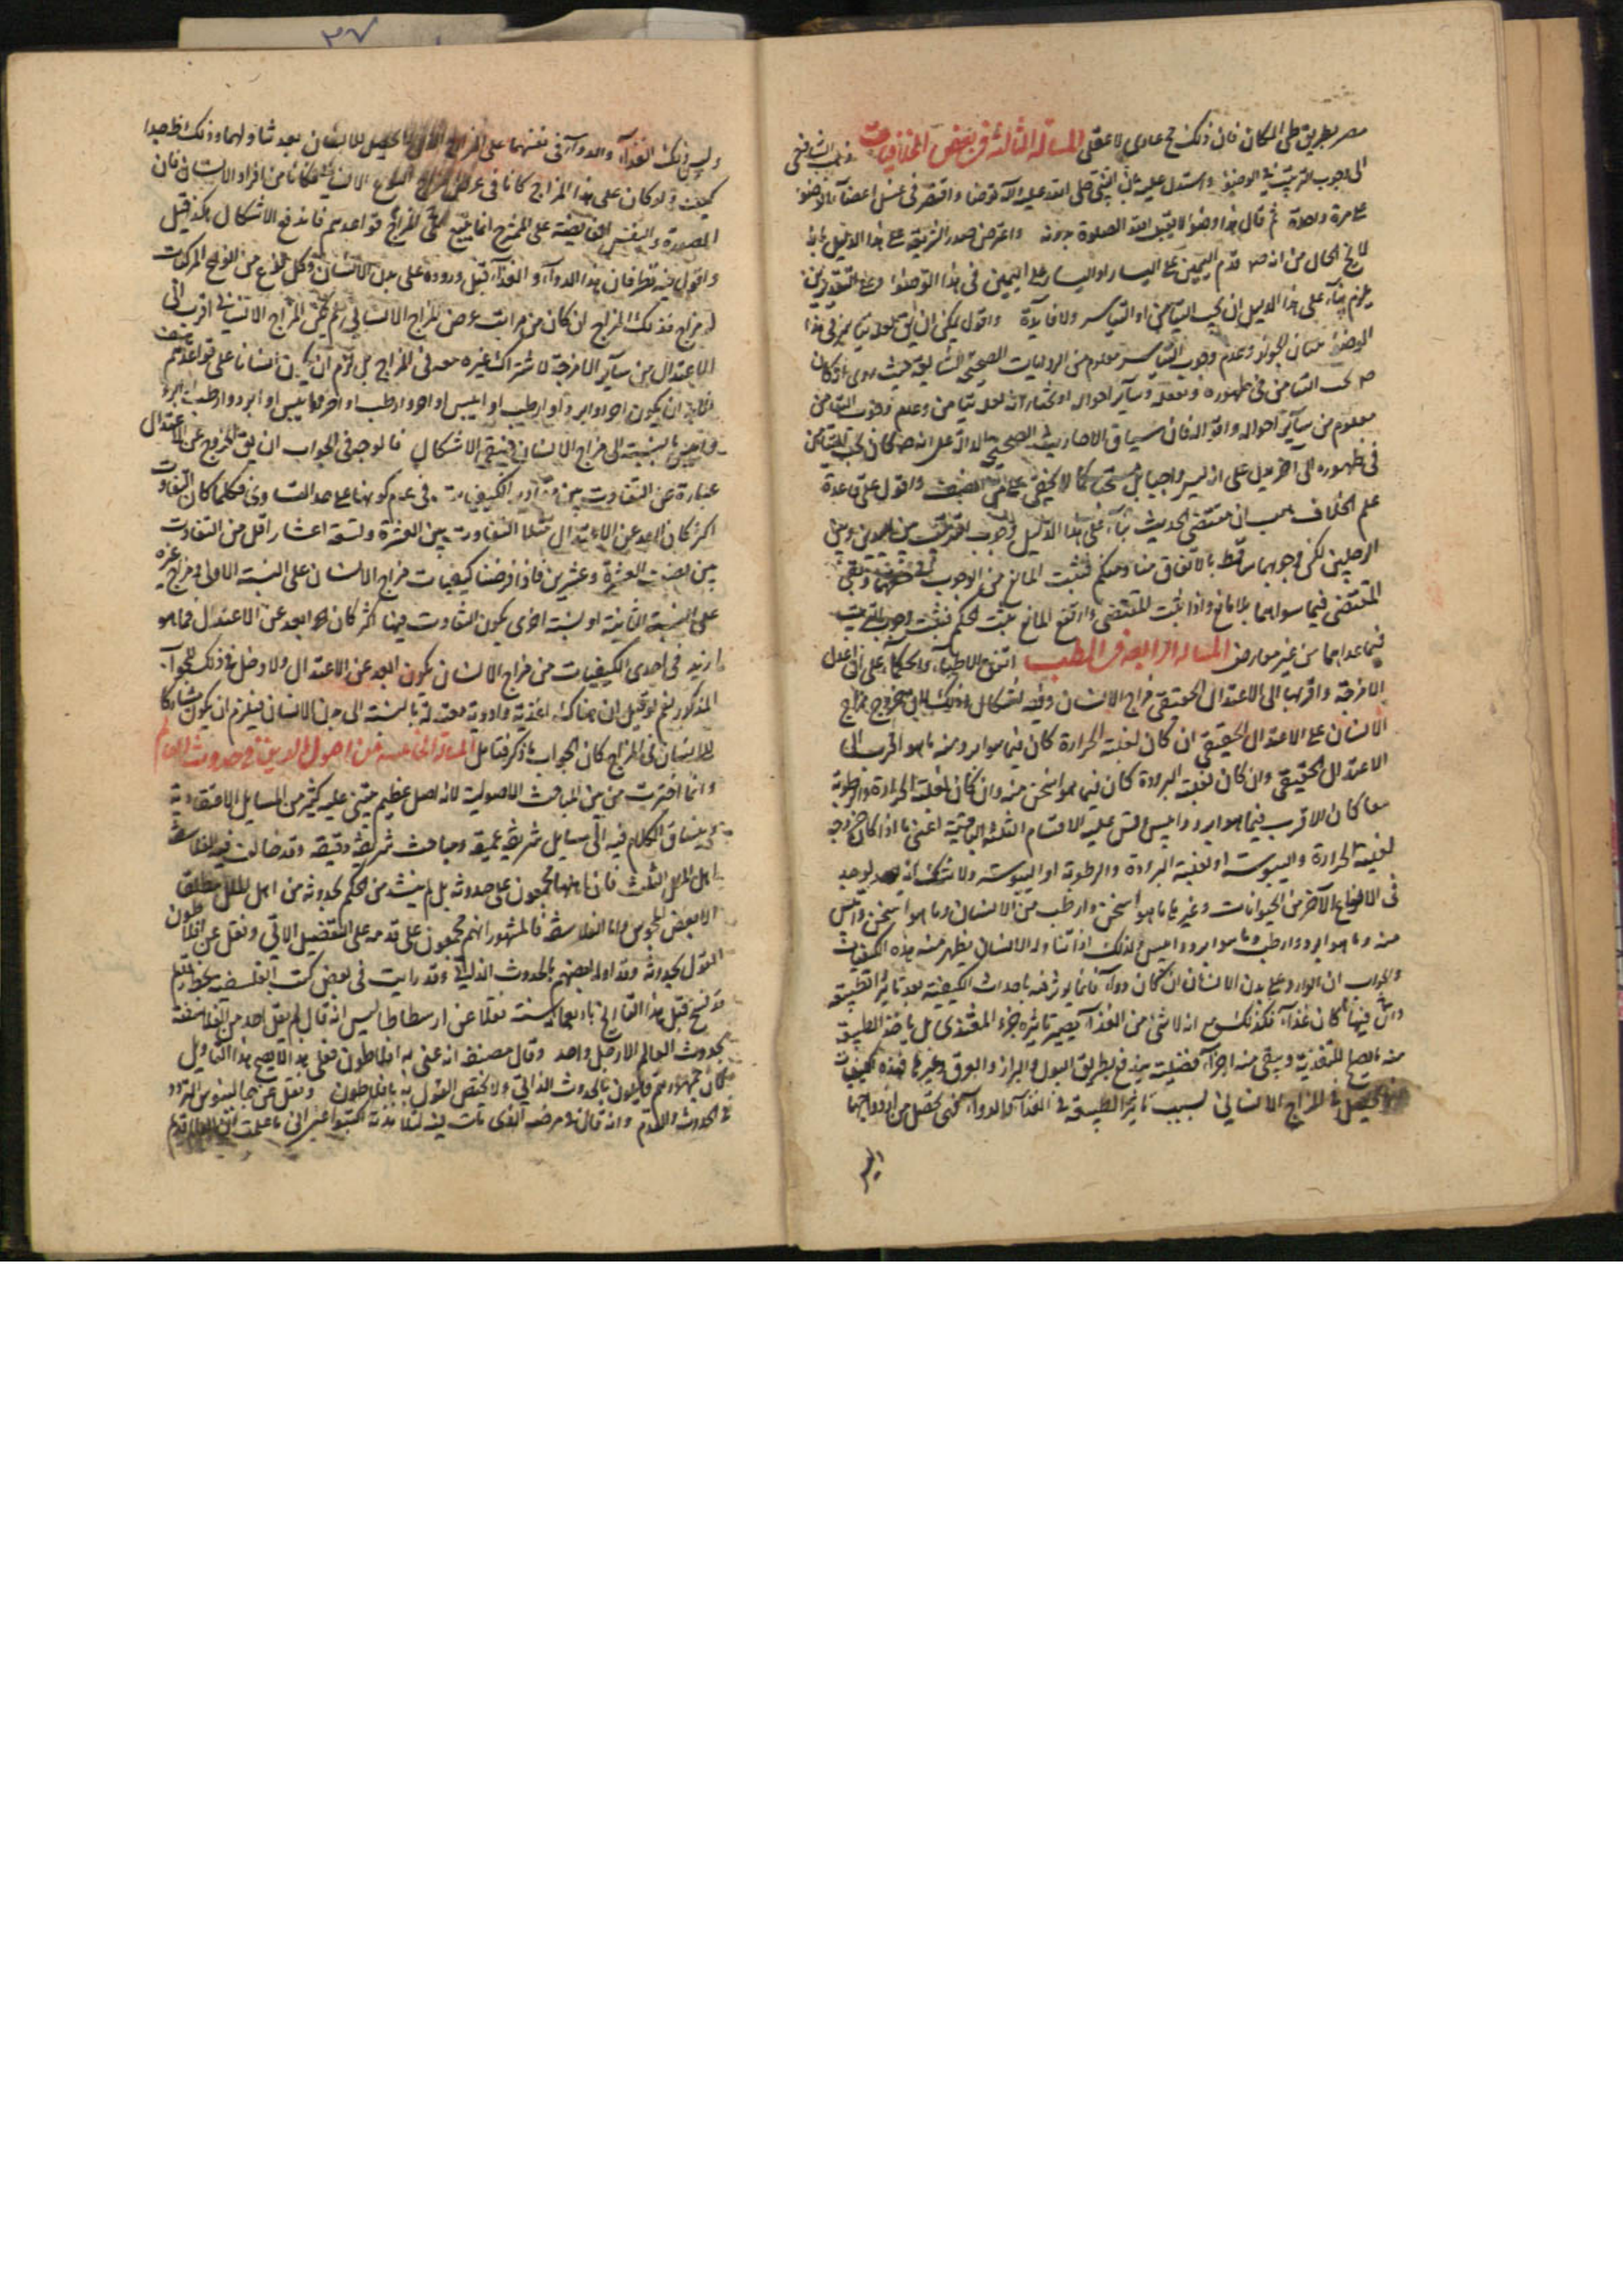 مصر بطريق طى المكان فان ذلك مح عادى لا عقلى المسألة الثالثة فى بعض الخلافيات ذهب الشافعى
الى وجوب الترتيب فى الوضوء واستدل عليه بان النبى صلى الله عليه وآله توضا واقتصر فى غسل اعضاء الوضوء
على مرة واحدة ثم قال هذا وضوء لا يقبل الله الصلوة بدونه واعترض صدر الشريعة على هذا الدليل بانه
لا يخ الحال من انه ص قدم اليمين على اليسار او اليسار على اليمين فى هذا الوضوء وعلى التقديرين
يلزم بناء على هذا الدليل ان يجب التيامن او التياسر ولا قايل به واقول يمكن ان يق لعله تيامن فى هذا
الوضوء لبيان الجواز وعدم وجوب التياسر معلوم من الروايات الصحيحة الشايعة حيث روى انه كان
ص يحب التيامن فى طهوره وتنعله وساير احواله او نختار انه لعله تيامن وعدم وجوب التيامن
معلوم من ساير احواله واقواله فان سياق الاحاديث الصحيحة الدالة على انه ص كان يحب التيامن
فى طهوره الى آخره يدل على انه ليس واجبا بل مستحبا كما لا يخفى على المنصف واقول على قاعدة
علم الخلاف هب ان مقتضى الحديث بناء على هذا الدليل وجوب الترتيب بين اليدين وبين
الرجلين لكن وجوبهما ساقط بالاتفاق منا ومنكم فثبت المانع من الوجوب فى حقهما وبقى
المقتضى فيما سواهما بلا مانع واذا ثبت المقتضى وارتفع المانع ثبت الحكم فثبت وجوب الترتيب
فيما عداهما من غير معارض المسألة الرابعة من الطب اتفق الاطباء والحكماء على ان اعدل
الامزجة واقربها الى الاعتدال الحقيقى مزاج الانسان وفيه اشكال وذلك لان خروج مزاج
الانسان على الاعتدال الحقيقى ان كان لغلبة الحرارة كان فيما هو ابرد منه ما هو اقرب الى
الاعتدال الحقيقى وان كان لغلبة البرودة كان فيما هو اسخن منه وان كان لغلبة الحرارة والرطوبة
معا كان الاقرب فيما هو ابرد وايبس وقس عليه الاقسام الثلثة الباقية اعنى ما اذا كان خروجه
لغلبة الحرارة واليبوسة او لغلبة البرودة والرطوبة او اليبوسة ولا شك انه يوجد
فى الانواع الآخر من الحيوانات وغيرها ما هو اسخن وارطب من الانسان وما هو اسخن وايبس
منه وما هو ابرد وارطب وما هو ابرد وايبس ولذلك اذا تناوله الانسان يظهر منه هذه الكيفيات
والجواب ان الوارد على بدن الانسان ان كان دواء فانما يوثر فيه باحداث الكيفية بعد تاثير الطبيعة
فيها وان كان غذاء فكذلك مع انه لا شئ من الغذاء يصير تاثيره جزء المغتذى بل ياخذ الطبيعة
منه ما يصلح للتغذية ويبقى منه اجزاء فضلية يندفع بطريق البول والبراز والعرق وغيرها فهذه كيفيات
يحصل فى المزاج الانسانى بسبب تاثير الطبيعة فى الغذاء والدواء
وليس ذلك الغذاء والدواء فى نفسهما على المزاج الذى يحصل للانسان بعد تناولهما وذلك ظ جدا
كيف ولو كان على هذا المزاج كانا فى عرض مزاج النوع الانسانى فكانا من افراد الانسان فان
الصورة والنفس الفايضة على الممتزج انما يتبع المزاج قواعدهم فاندفع الاشكال هكذا قيل
واقول فيه نظر فان هذا الدواء والغذاء قبل وروده على بدن الانسان وكل نوع من انواع المركبات
له مزاج فذلك المزاج ان كان من مراتب عرض المزاج الانسانى لم يكن المزاج الانسانى اقرب الى
الاعتدال من ساير الامزجة لاشتراك غيره معه فى المزاج بل لزم ان يكون انسانا على قواعدهم
ان يكون احر او ابرد او ارطب او ايبس او احر وارطب او احر وايبس او ابرد وارطب او ابرد
وايبس بالنسبة الى مزاج الانسان فيبقى الاشكال فالوجه فى الجواب ان يق الخروج عن الاعتدال
عبارة عن التفاوت بين مقادير الكيفيات فى عدم كونها على حد التساوى فكلما كان التفاوت
اكثر كان ابعد عن الاعتدال مثلا التفاوت بين العشرة وتسعة اعشار اقل من التفاوت
بين نصف العشرة وعشرين فاذا فرضنا كيفيات مزاج الانسان على النسبة الاولى ومزاج غيره
على النسبة الثانية او نسبة اخرى يكون التفاوت فيها اكثر كان هو ابعد عن الاعتدال فما هو
ازيد فى احدى الكيفيات من مزاج الانسان يكون ابعد عن الاعتدال ولا دخل فى ذلك للجواب
المذكور نعم لو قيل ان هناك اغذية وادوية معتدلة بالنسبة الى بدن الانسان فيلزم ان يكون مشاركا
للانسان فى المزاج كان الجواب ما ذكر فتامل المسألة الخامسة من اصول الدين فى حدوث العالم
وانما اخترت من بين المباحث الاصولية لانه اصل عظيم يبتنى عليه كثير من المسايل الاعتقادية
وينساق الكلام فيه الى مسايل شريفة عميقة ومباحث شريفة دقيقة وقد خالف فيه الفلاسفة
اهل الملل الثلث فان اهلها مجمعون على حدوثه بل لم يشذ من الحكم بحدوثه من اهل الملل مطلقا
الا بعض المجوس واما الفلاسفة فالمشهور انهم مجمعون على قدمه على التفصيل الاتى ونقل عن افلاطون
القول بحدوثه وقد اوله بعضهم بالحدوث الذاتى وقد رايت فى بعض كتب الفلسفة بخط قديم
قد نسخ قبل هذا التاريخ باربعماية سنة نقلا عن ارسطاطاليس انه قال لم يقل احد من الفلاسفة
بحدوث العالم الا رجل واحد وقال مصنفه انه عنى به افلاطون فعلى هذا لا يصح هذا التاويل
فان جمهورهم قايلون بالحدوث الذاتى ولا يختص القول به بافلاطون ونقل عن جالينوس التردد
فى الحدوث والقدم وانه قال فى مرضه الذى مات فيه لتلامذته اكتبوا عنى انى ما علمت ان العالم قديم